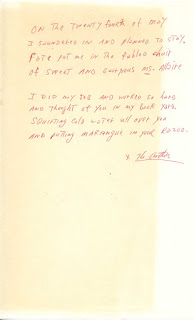 ON THE TWENTY fourth of MAY
I SAUNTERED IN AND PLANNED TO STAY.
FATE PUT ME IN THE fabled chair
of SWEET AND GORGEOUS MS. Allaire
I DID MY JOB AND WORKED SO hard
AND thought of you IN MY back yard,
SQUIRTING COLD WATER All OVER you
AND PUTTING MARZIPAN IN YOUR
x The Author